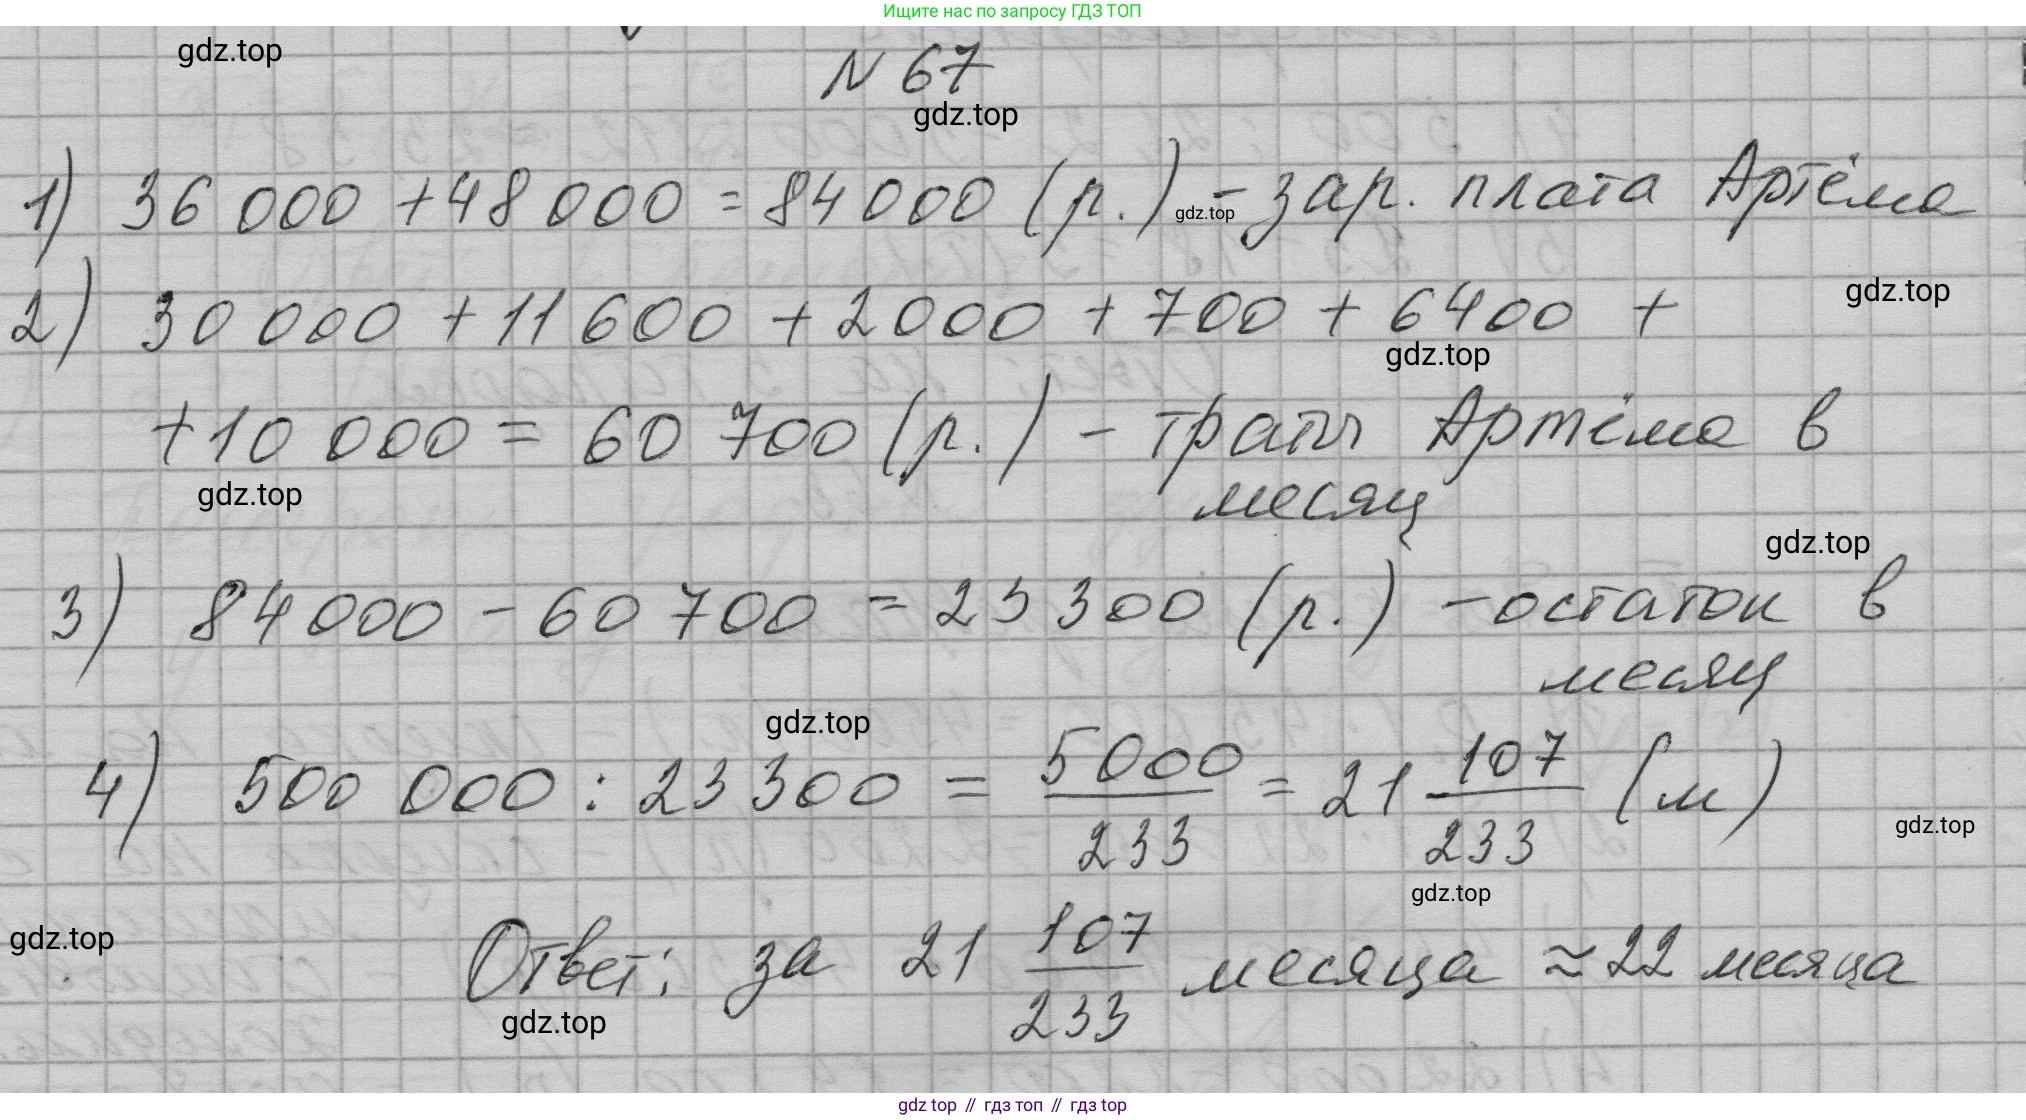 Ищите нас по запросу ГДЗ ТОП
gdz.top
N 67
gdz.top
1) 36 000 + 48 000 = 84 000 (р.) - зар. плата Артёма
gdz.top
2) 30 000 + 11 600 + 2000 + 700 + 6400 +
gdz.top
gdz.top
+ 10 000 = 60 700 (р.) - траты Артёма в
месяц
gdz.top
gdz.top
3) 84 000 - 60 700 = 23 300 (р.) - остаток в
месяц
gdz.top
4) 500 000 : 23 300 = 5000/233 = 21 107/233 (м)
gdz.top
gdz.top
gdz.top
Ответ: за 21 107/233 месяца ≈ 22 месяца
gdz.top
gdz top // гдз топ // гдз top